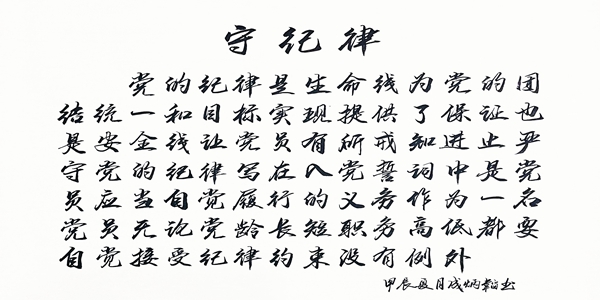 守纪律
党的纪律是生命线为党的团
结统一和目标实现提供了保证也
是安全线让党员有所戒知进止严
守党的纪律写在入党誓词中是党
员应当自觉履行的义务作为一名
党员无论党龄长短职务高低都要
自觉接受纪律约束没有例外
甲辰夏月成炳韜书